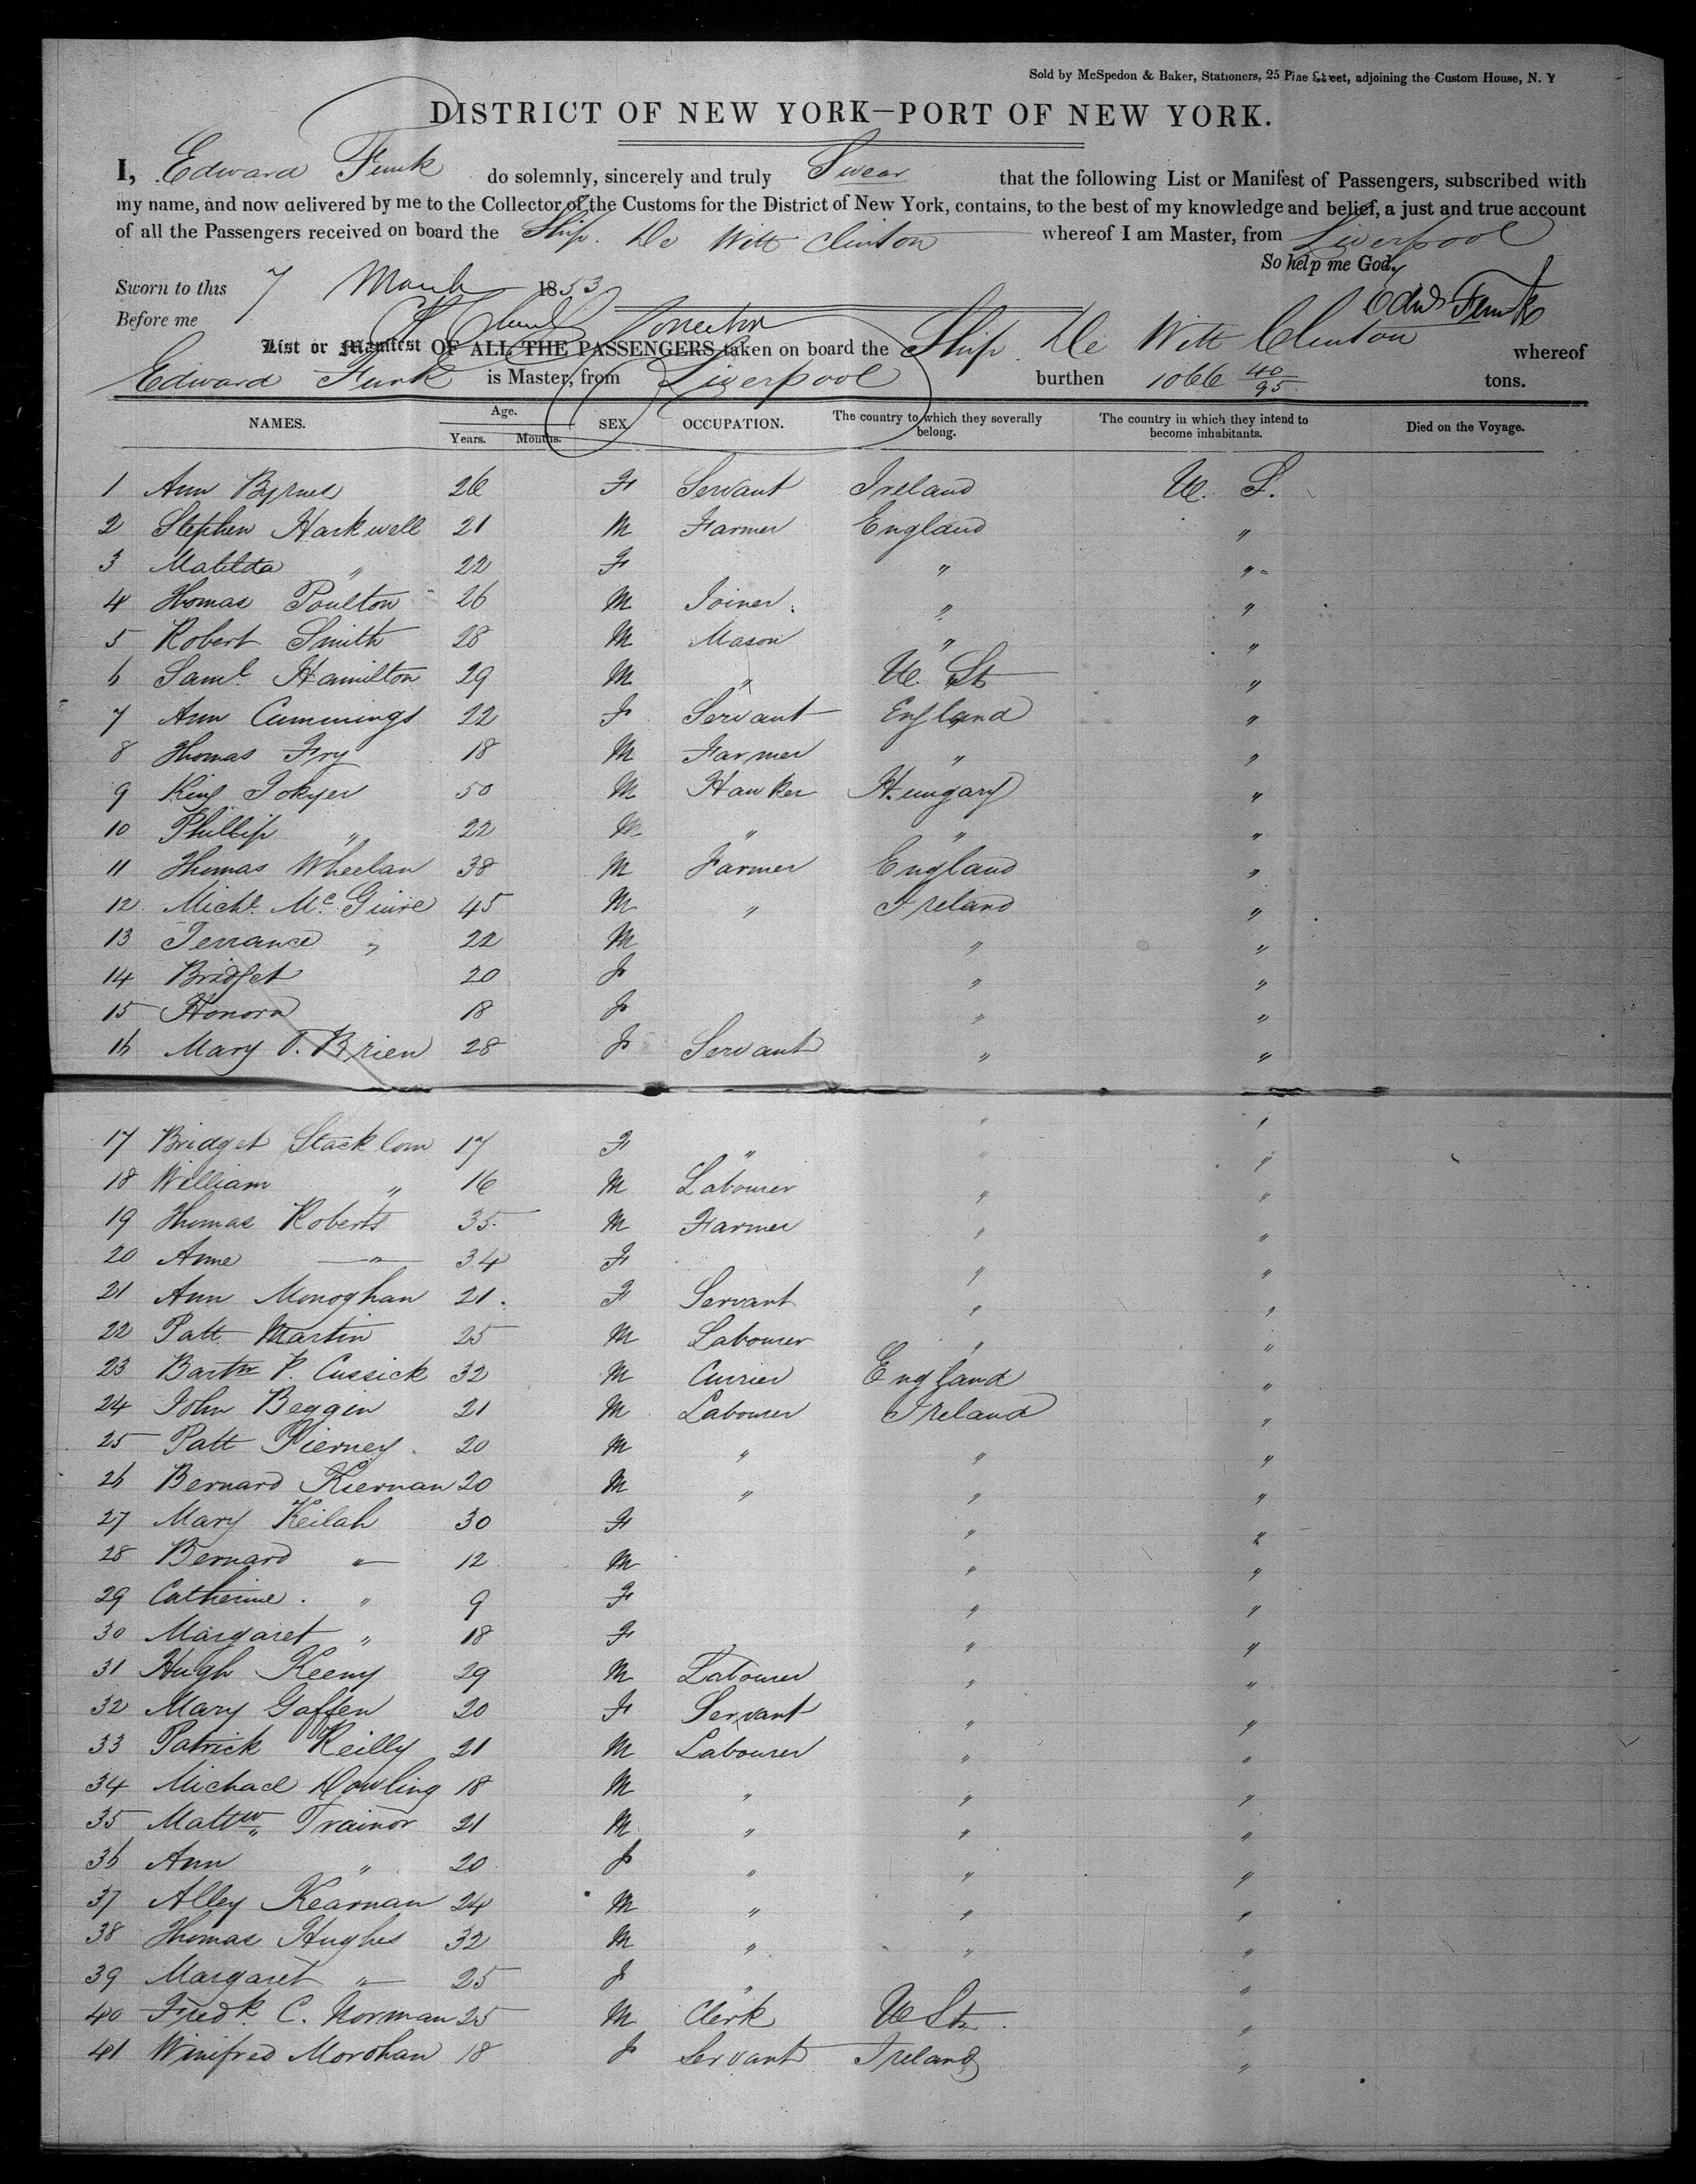 Sold by McSpedon & Baker, Stationers, 25 Pine Street, adjoining the Custom House, N. Y
DISTRICT OF NEW YORK—PORT OF NEW YORK.
I, Edward Funk do solemnly, sincerely and truly Swear that the following List or Manifest of Passengers, subscribed with
my name, and now delivered by me to the Collector of the Customs for the District of New York, contains, to the best of my knowledge and belief, a just and true account
of all the Passengers received on board the Ship De Witt Clinton whereof I am Master, from Liverpool
So help me God.
Sworn to this 7 March 1853
Edwd Funk
Before me
List or Manifest OF ALL THE PASSENGERS taken on board the Ship De Witt Clinton whereof
Edward Funk is Master, from Liverpool burthen 1066 40/95 tons.
NAMES. Age. Years. Months. SEX OCCUPATION. The country to which they severally belong. The country in which they intend to become inhabitants. Died on the Voyage.
1 Ann Byrnes 26 F Servant Ireland U. S.
2 Stephen Harkwell 21 M Farmer England "
3 Matilda " 22 F " "
4 Thomas Poulton 26 M Joiner " "
5 Robert Smith 28 M Mason " "
6 Saml. Hamilton 29 M " U. St "
7 Ann Cummings 22 F Servant England "
8 Thomas Fry 18 M Farmer " "
9 King Tokyer 50 M Hawker Hungary "
10 Phillip " 22 M " " "
11 Thomas Wheelan 38 M Farmer England "
12 Michl. McGuire 45 M " Ireland "
13 Terrance " 22 M " "
14 Bridget 20 F " "
15 Honora 18 F " "
16 Mary O. Brien 28 F Servant " "
17 Bridget Stacklom 17 F " " "
18 William " 16 M Labourer " "
19 Thomas Roberts 35 M Farmer " "
20 Anne " 34 F " "
21 Ann Monoghan 21 F Servant " "
22 Patt Martin 25 M Labourer " "
23 Bartw P. Cussick 32 M Currier England "
24 John Beggin 21 M Labourer Ireland "
25 Patt Kierney 20 M " " "
26 Bernard Kiernan 20 M " " "
27 Mary Keilah 30 F " "
28 Bernard " 12 M " "
29 Catherine " 9 F " "
30 Margaret " 18 F " "
31 Hugh Keeny 29 M Labourer " "
32 Mary Gaffen 20 F Servant " "
33 Patrick Reilly 21 M Labourer " "
34 Michael Dowling 18 M " " "
35 Mattw Trainor 21 M " " "
36 Ann " 20 F " " "
37 Alley Kearnan 24 M " " "
38 Thomas Hughes 32 M " " "
39 Margaret " 25 F " "
40 Fredk. C. Norman 25 M Clerk U St "
41 Winifred Morohan 18 F Servant Ireland "